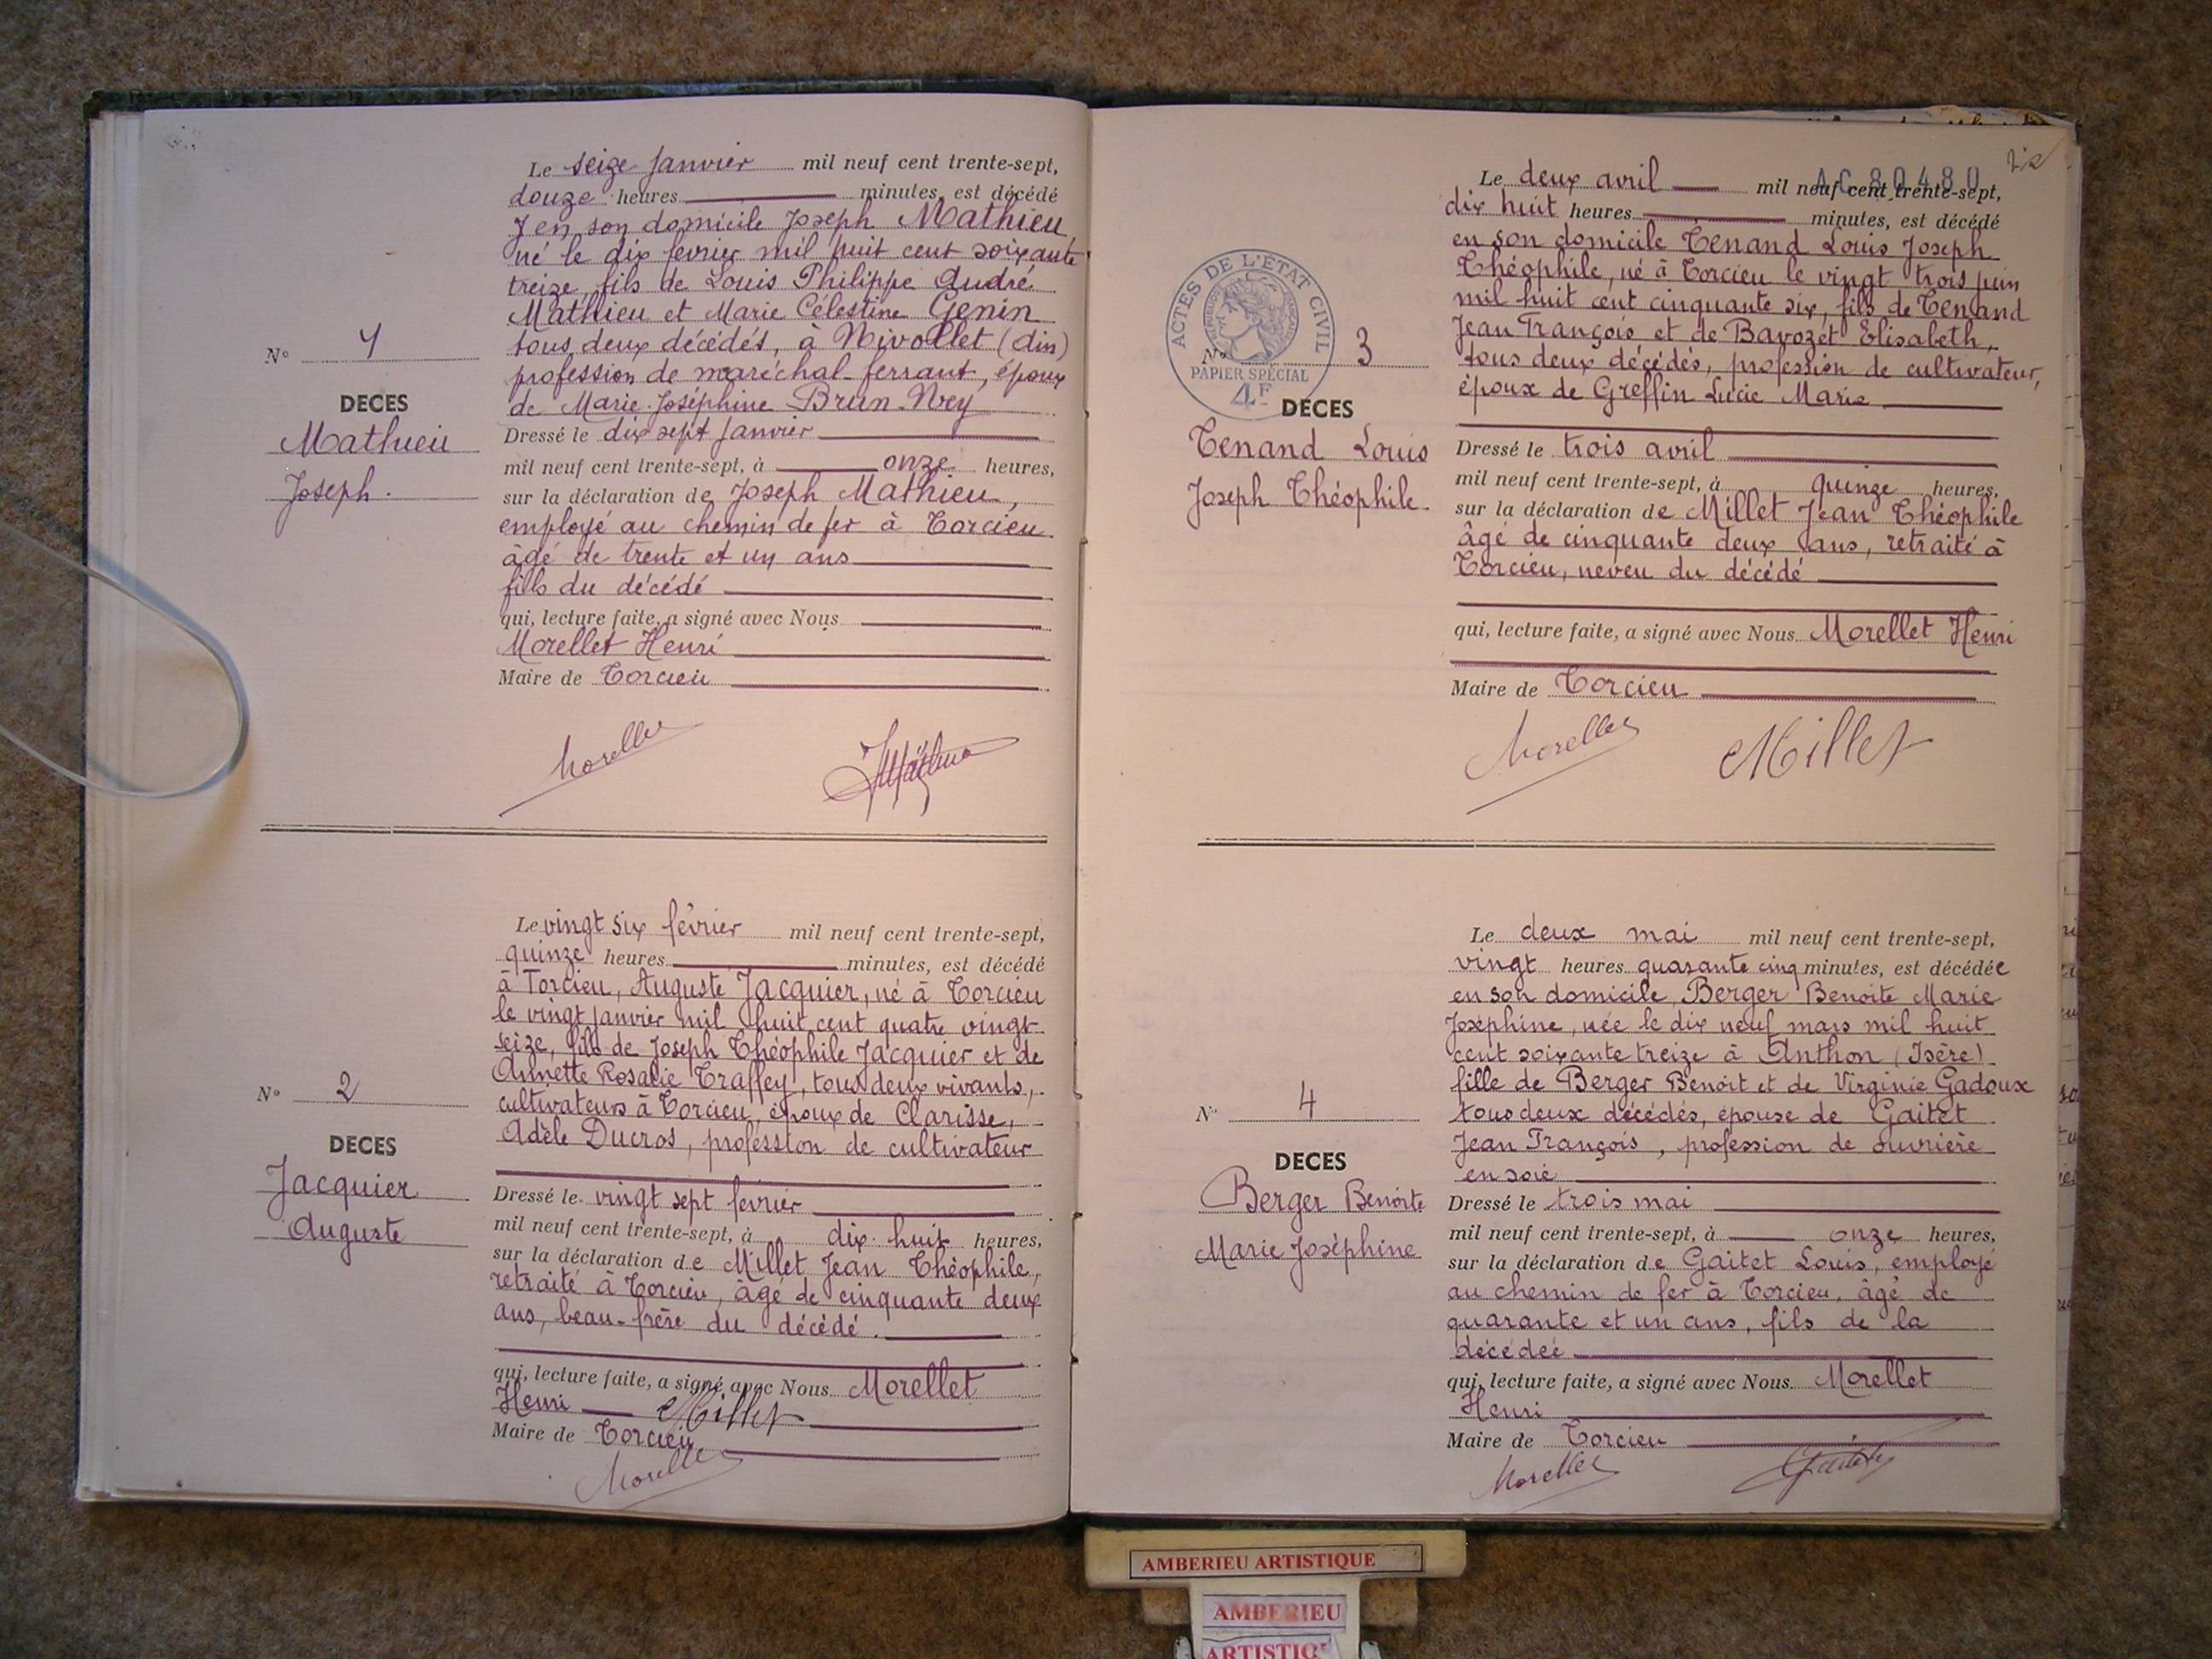 Le seize janvier mil neuf cent trente-sept,
douze heures minutes, est décédé
en son domicile Joseph Mathieu
né le dix fevrier mil huit cent soixante
treize, fils de Louis Philippe André
Mathieu et Marie Célestine Genin
tous deux décédés, à Nivollet (Ain)
profession de maréchal-ferrant, époux
de Marie-Joséphine Brun-Ney
N° 1
DECES
Mathieu
Joseph.
Dressé le dix sept janvier
mil neuf cent trente-sept, à onze heures,
sur la déclaration de Joseph Mathieu,
employé au chemin de fer à Torcieu
âgé de trente et un ans
fils du décédé
qui, lecture faite, a signé avec Nous
Morellet Henri
Maire de Torcieu
Morellet
Le vingt six février mil neuf cent trente-sept,
quinze heures minutes, est décédé
à Torcieu, Auguste Jacquier, né à Torcieu
le vingt janvier mil huit cent quatre vingt
seize, fils de Joseph Théophile Jacquier et de
Annette Rosalie Traffey, tous deux vivants,
cultivateurs à Torcieu, époux de Clarisse,
Adèle Ducros, profession de cultivateur
N° 2
DECES
Jacquier
Auguste
Dressé le vingt sept fevrier
mil neuf cent trente-sept, à dix-huit heures,
sur la déclaration de Millet Jean Théophile,
retraité à Torcieu, âgé de cinquante deux
ans, beau-frère du décédé.
qui, lecture faite, a signé avec Nous Morellet
Henri Millet
Maire de Torcieu
Morellet
AC 80480
Le deux avril mil neuf cent trente-sept,
dix huit heures minutes, est décédé
en son domicile Tenand Louis Joseph
Théophile, né à Torcieu le vingt trois juin
mil huit cent cinquante six, fils de Tenand
Jean François et de Bavozet Elisabeth,
tous deux décédés, profession de cultivateur,
époux de Greffin Lucie Marie
ACTES DE L'ÉTAT CIVIL
PAPIER SPÉCIAL
4F
N° 3
DECES
Tenand Louis
Joseph Théophile
Dressé le trois avril
mil neuf cent trente-sept, à quinze heures,
sur la déclaration de Millet Jean Théophile
âgé de cinquante deux ans, retraité à
Torcieu, neveu du décédé
qui, lecture faite, a signé avec Nous Morellet Henri
Maire de Torcieu
Morellet Millet
Le deux mai mil neuf cent trente-sept,
vingt heures quarante cinq minutes, est décédée
en son domicile Berger Benoite Marie
Joséphine, née le dix neuf mars mil huit
cent soixante treize à Anthon (Isère)
fille de Berger Benoit et de Virginie Gadoux
tous deux décédés, épouse de Gaitet
Jean François, profession de ouvrière
en soie
N° 4
DECES
Berger Benoite
Marie Joséphine
Dressé le trois mai
mil neuf cent trente-sept, à onze heures,
sur la déclaration de Gaitet Louis, employé
au chemin de fer à Torcieu, âgé de
quarante et un ans, fils de la
décédée
qui, lecture faite, a signé avec Nous Morellet
Henri
Maire de Torcieu
Morellet Gaitet
AMBERIEU ARTISTIQUE
AMBERIEU
ARTISTIQ